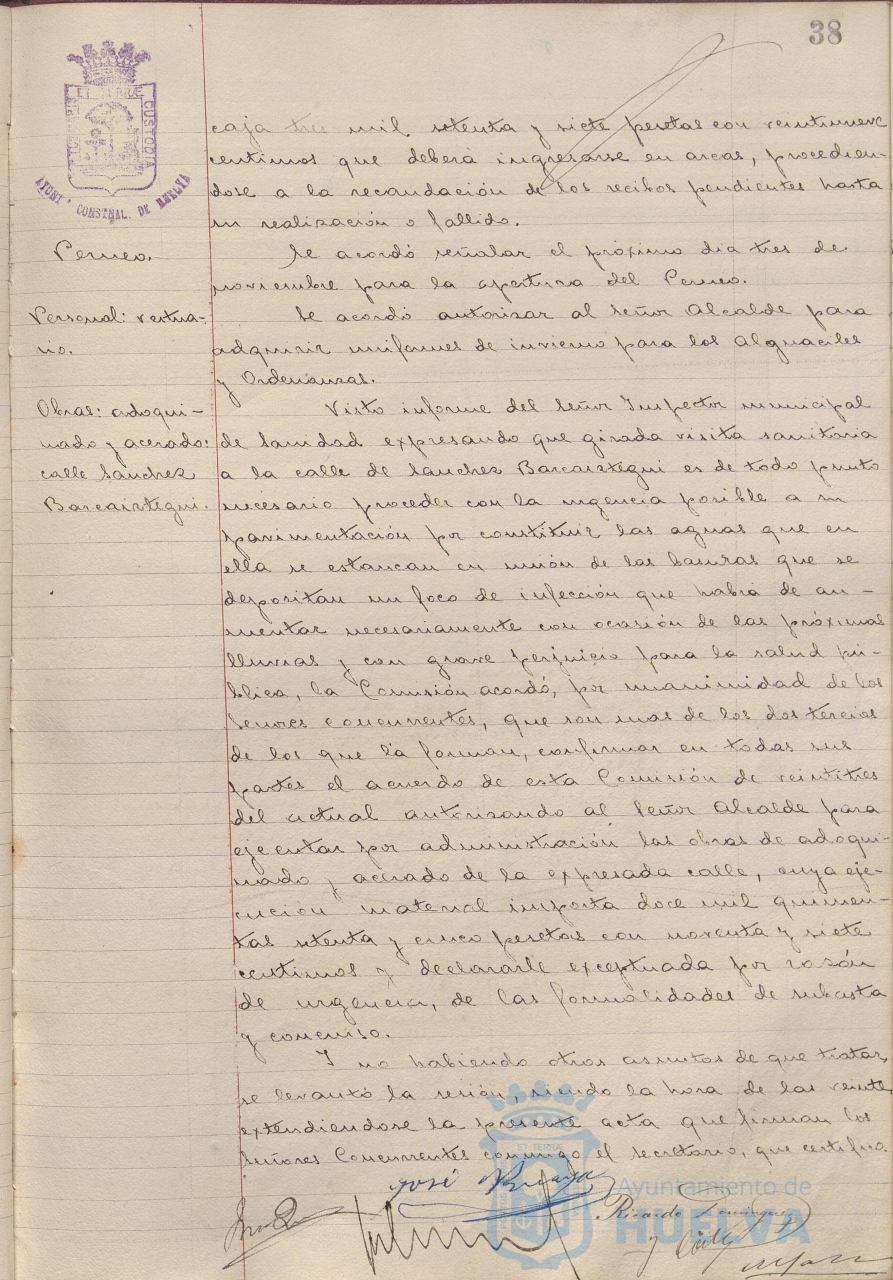 38
ET TERRÆ
CUSTODIA
AYUNT. CONSTNAL. DE HUELVA
caja tres mil setenta y siete pesetas con veintinueve
centimos que deberá ingresarse en arcas, procedien-
dose a la recaudación de los recibos pendientes hasta
su realización o fallido.
Perneo.
Se acordó señalar el próximo dia tres de
noviembre para la apertura del Perneo.
Personal: vestua-
rio.
Se acordó autorizar al Señor Alcalde para
adquirir uniformes de invierno para los Alguaciles
y Ordenanzas.
Obras: adoqui-
nado y acerado:
calle Sánchez
Barcaiztegui.
Visto informe del Señor Inspector municipal
de Sanidad expresando que girada visita sanitaria
a la calle de Sanchez Barcaiztegui es de todo punto
necesario proceder con la urgencia posible a su
pavimentación por constituir las aguas que en
ella se estancan en unión de las basuras que se
depositan un foco de infección que habrá de au-
mentar necesariamente con ocasión de las próximas
lluvias y con grave perjuicio para la salud pú-
blica, la Comisión acordó, por unanimidad de los
Señores concurrentes, que son mas de los dos tercios
de los que la forman, confirmar en todas sus
partes el acuerdo de esta Comisión de veintitres
del actual autorizando al Señor Alcalde para
ejecutar por administración las obras de adoqui-
nado y acerado de la expresada calle, cuya eje-
cución material importa doce mil quinien-
tas setenta y cinco pesetas con noventa y siete
centimos y declararle exceptuada por razón
de urgencia, de las formalidades de subasta
y concurso.
Y no habiendo otros asuntos de que tratar,
se levantó la sesión, siendo la hora de las veinte,
extendiendose la presente acta que firman los
Señores Concurrentes conmigo el secretario, que certifico.
José
Ricardo Dominguez
Ayuntamiento de
HUELVA
ET TERRÆ